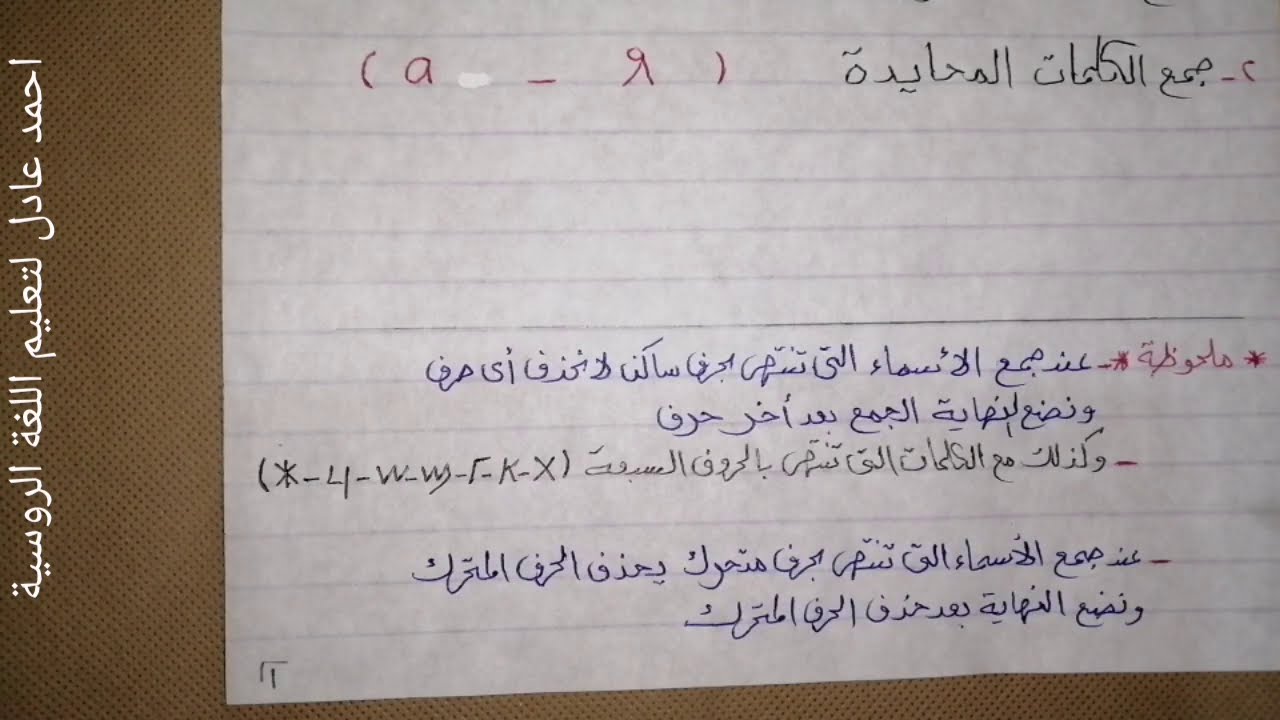 ٢- جمع الكلمات المحايدة ( я - а )
* ملحوظة *- عند جمع الأسماء التى تنتهى بحرف ساكن لا نحذف أى حرف
ونضع نهاية الجمع بعد أخر حرف
- وكذلك مع الكلمات التى تنتهى بالحروف السبعة (Ж-Ч-Ш-Щ-Г-К-Х)
- عند جمع الأسماء التى تنتهى بحرف متحرك يحذف الحرف المتحرك
ونضع النهاية بعد حذف الحرف المتحرك
احمد عادل لتعليم اللغة الروسية